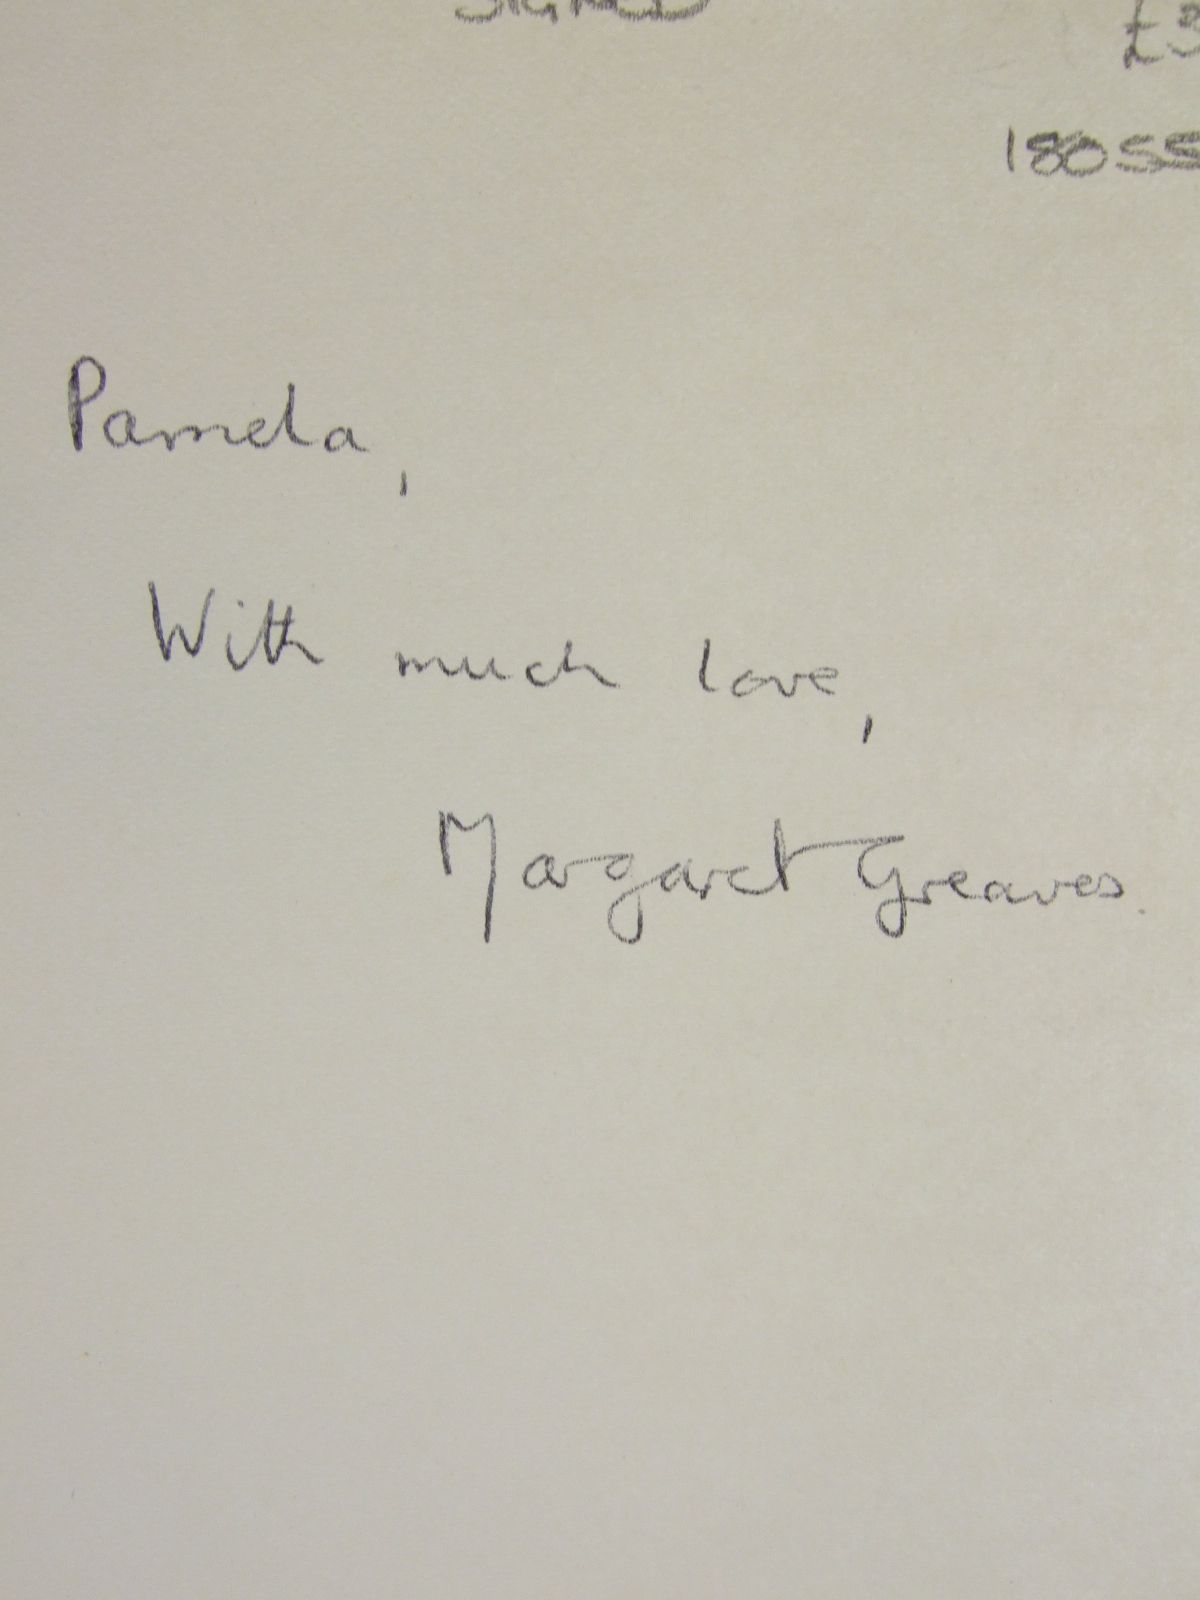 SIGNED
£3
180SS
Pamela,
With much love,
Margaret Greaves.